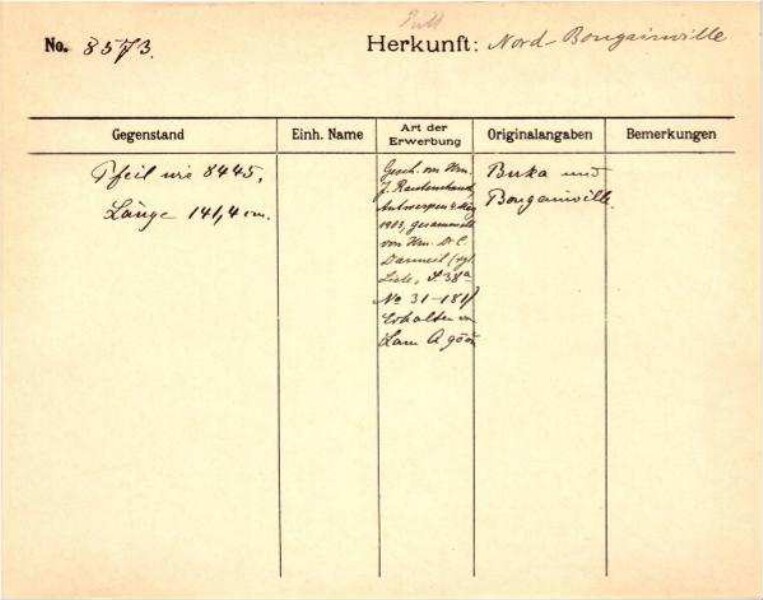 No. 8573. Herkunft: Nord-Bougainville
Gegenstand Einh. Name Art der Erwerbung Originalangaben Bemerkungen
Pfeil wie 8445,
Länge 141,4 cm.
Gesch. von Hrn.
J.
Antwerpen
1903, gesammelt
von Hrn. Dr. C.
(vgl.
Liste, S. 38a
No 31-181)
Erhalten
Buka und
Bougainville.